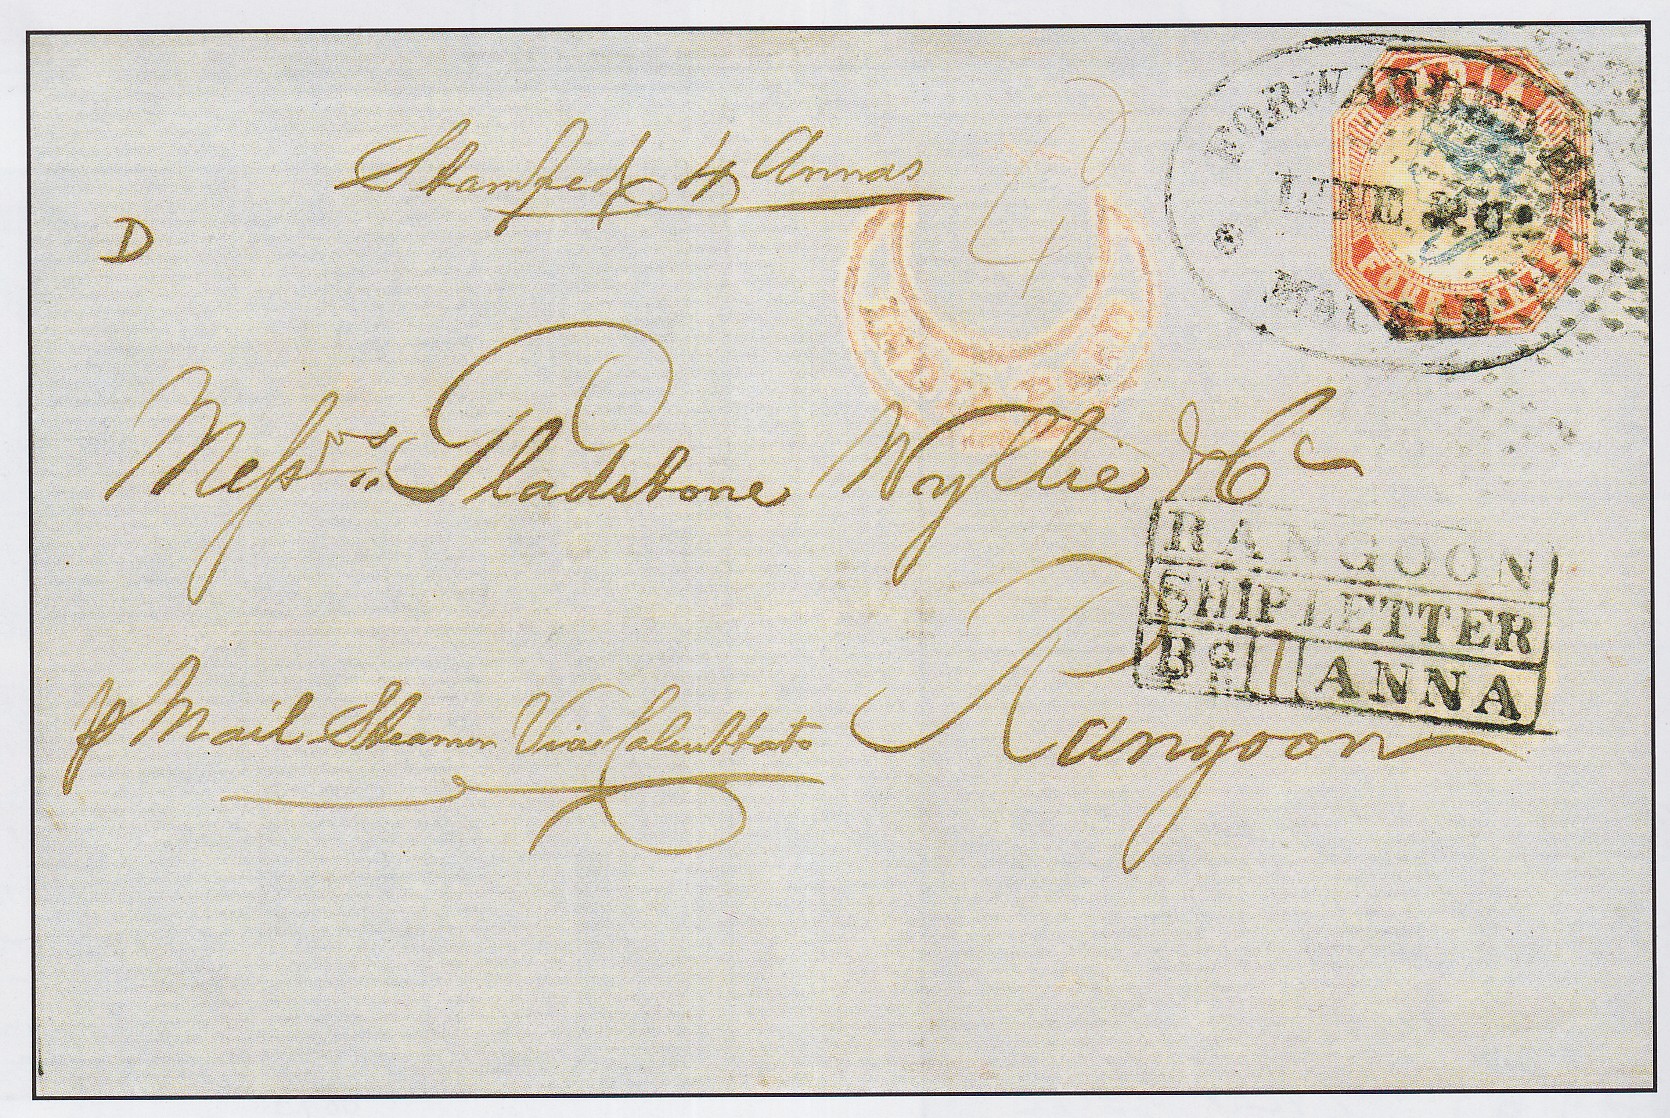 Stamped 4 Annas
D
4
FORWARDED BY
INDIA
FOUR ANNAS
INDIA PAID
Messrs,, Gladstone Wyllie & Co
RANGOON
SHIP LETTER
BG 1 ANNA
Rangoon
p Mail Steamer Via Calcutta to